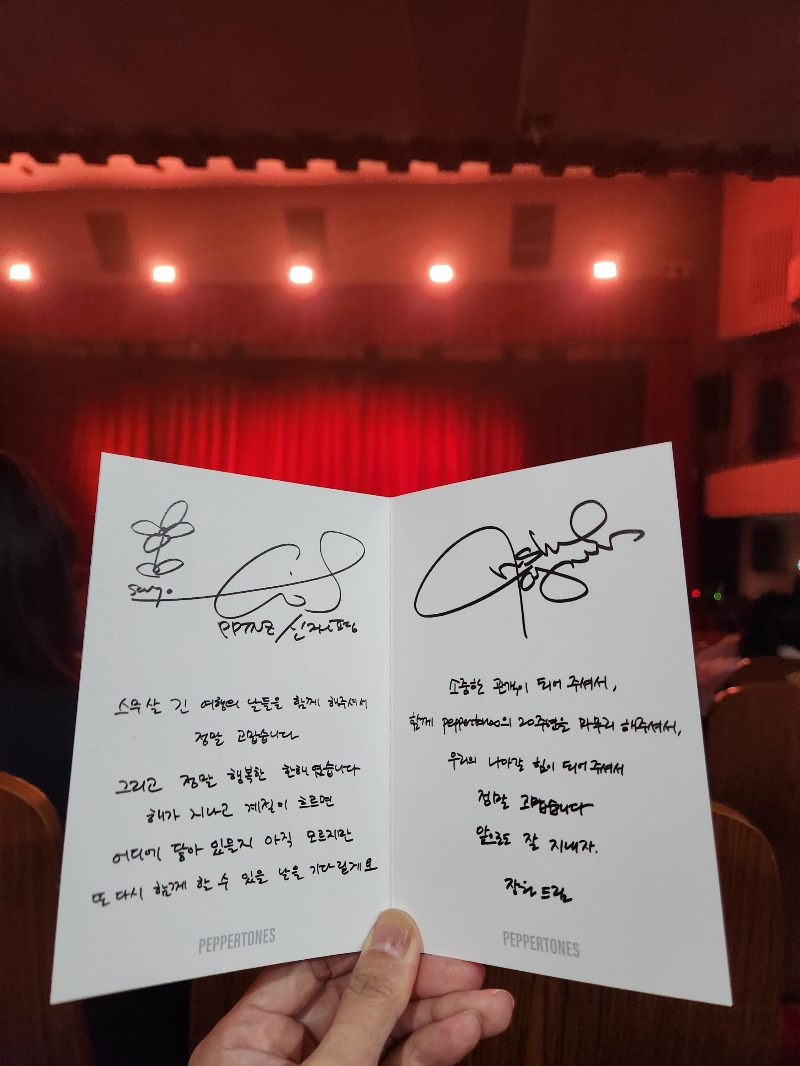 sayo.
PPTNZ / 신재평
스무살 긴 여행의 날들을 함께 해주셔서
정말 고맙습니다
그리고 정말 행복한 한해였습니다
해가 지나고 계절이 흐르면
어디에 닿아 있을지 아직 모르지만
또 다시 함께 할 수 있을 날을 기다릴게요
PEPPERTONES
소중한 관객이 되어 주셔서,
함께 peppertones의 20주년을 마무리 해주셔서,
우리의 나아갈 힘이 되어주셔서
정말 고맙습니다
앞으로도 잘 지내자.
장원 드림
PEPPERTONES